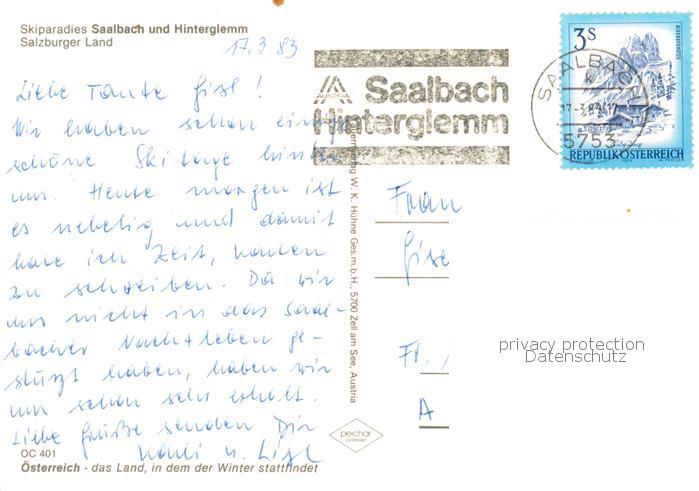 Skiparadies Saalbach und Hinterglemm
Salzburger Land
17.3.83
Liebe Tante Gisl!
Wir haben schon einige
schöne Skitage hinter
uns. Heute morgen ist
es nebelig und damit
habe ich Zeit, Karten
zu schreiben. Da wir
uns nicht in das Saal-
bacher Nachtleben ge-
stürzt haben, haben wir
uns schon sehr erholt.
Liebe Grüße senden Dir
u. Lisl
OC 401
Österreich - das Land, in dem der Winter stattfindet
AUSTRIA
Saalbach
Hinterglemm
SAALBACH
5753
3S
REPUBLIK ÖSTERREICH
W. K. Hühne Ges.m.b.H., 5700 Zell am See, Austria
peichär
Frau
Gise
A
privacy protection
Datenschutz